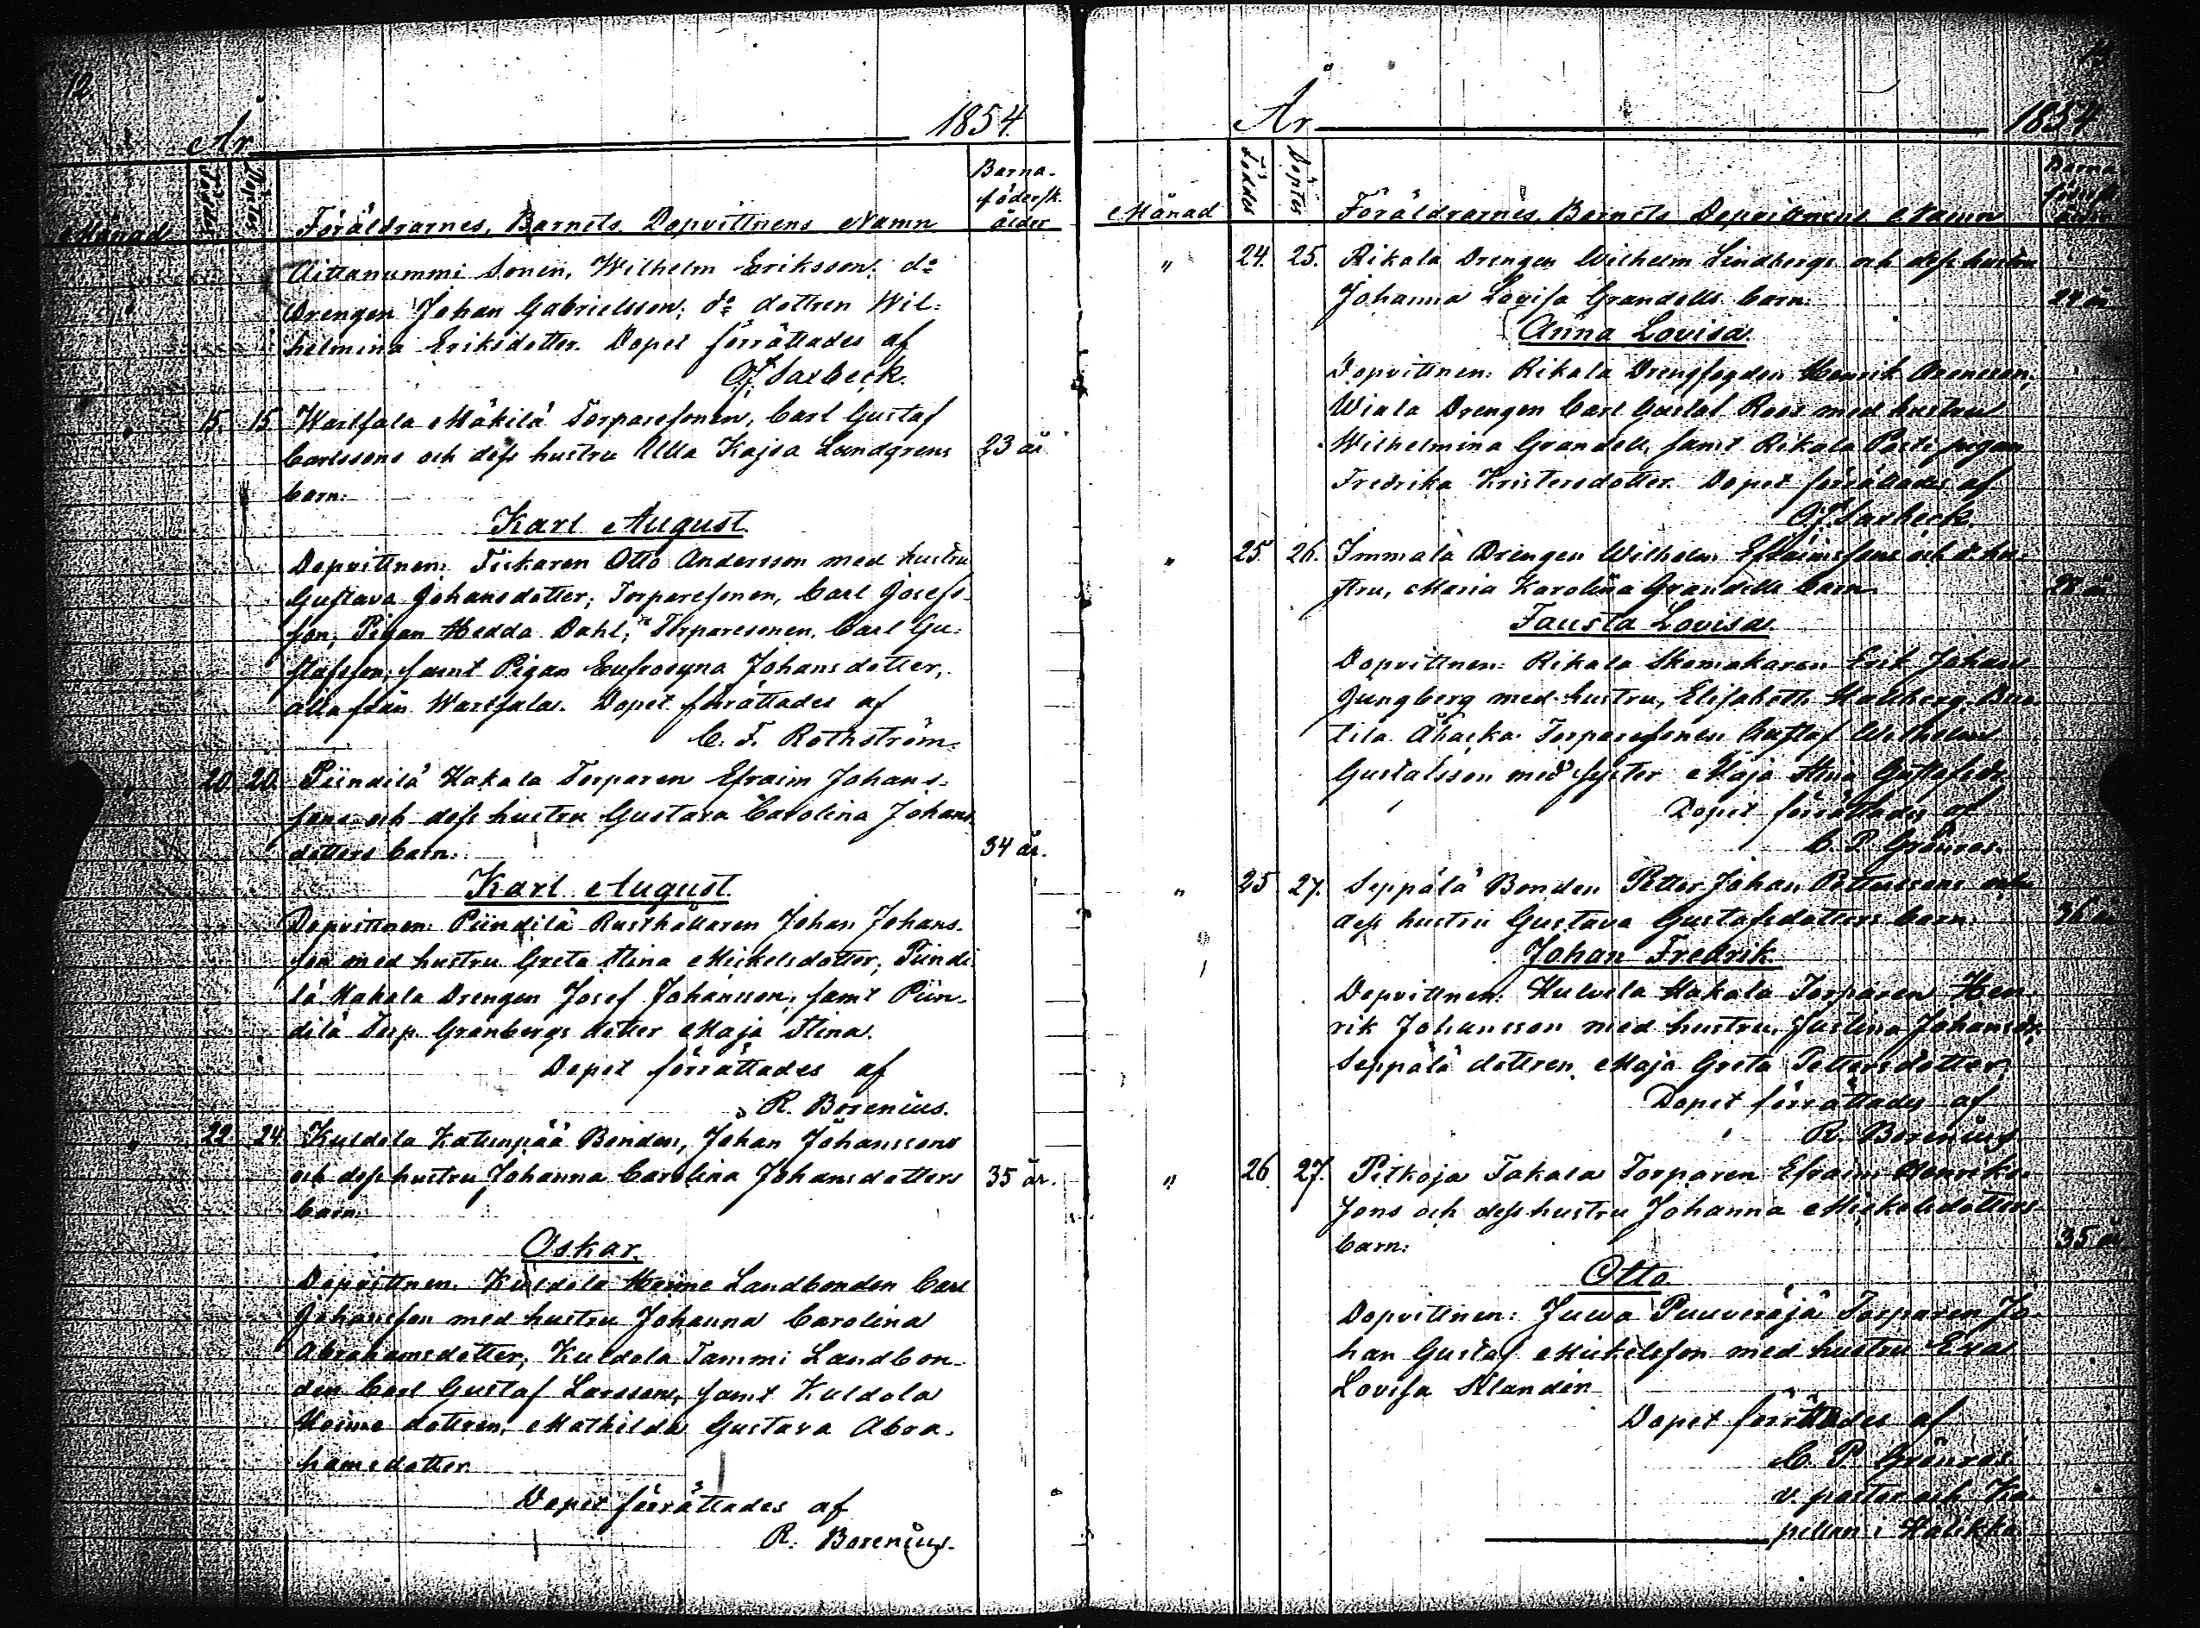 12.
År 1854.
Månad Föddes Döptes Föräldrarnes, Barnets Dopvittnens Namn Barna-födersk. ålder
Aittanummi Sonen, Wilhelm Eriksson, d:o
Drengen Johan Gabrielsson, d:o dottren Wil-
helmina Eriksdotter. Dopet förrättades af
Saxbeck.
" 15. 15 Wartsala Mäkilä Torparesonen, Carl Gustaf
Carlssons och dess hustru Ulla Kajsa Lundgrens 23 år
barn:
Karl August.
Dopvittnen: Fiskaren Otto Andersson med hustru
Gustava Johansdotter; Torparesonen, Carl Josefs-
son; Pigan Hedda Dahl; Torparesonen, Carl Gu-
stafsson; samt Pigan Eufrosyna Johansdotter,
alla från Wartsala. Dopet förrättades af
C. F. Rothström.
" 20. 20. Piindilä Hakala Torparen Efraim Johans-
sons och dess hustru Gustava Carolina Johans-
dotters barn: 34 år.
Karl August.
Dopvittnen: Piindilä Rusthållaren Johan Johans-
son med hustru Greta Stina Mickelsdotter, Piindi-
lä Hakala Drengen Josef Johansson, samt Piin-
dilä Torp. Granbergs dotter Maja Stina.
Dopet förrättades af
R. Borenius.
" 22. 24. Kuldola Bonden, Johan Johanssons
och dess hustru Johanna Carolina Johansdotters 35 år.
barn:
Oskar.
Dopvittnen: Kuldola Heime Landbonden Carl
Johansson med hustru Johanna Carolina
Abrahamsdotter, Kuldola Tammi Landbon-
den Carl Gustaf Larsson, samt Kuldola
Heime dottren, Mathilda Gustava Abra-
hamsdotter.
Dopet förrättades af
R. Borenius.
År 1854
Månad Föddes Döptes Föräldrarnes Barnets Dopvittnens Namn Barna födersk. ålder
" 24. 25. Rikala Drengen Wilhelm Lindbergs och dess hustru
Johanna Lovisa Grandells barn:
Anna Lovisa.
Dopvittnen: Rikala Drengfogden Henrik
Wiala Drengen Carl Gustaf Roos med hustru
Wilhelmina Grandell, samt Rikala pigan
Fredrika Kristersdotter. Dopet förrättades af
Saxbeck.
" 25. 26. Immala Drengen Wilhelm Efraimssons och d. hu-
stru, Maria Karolina Grandells barn 28 år
Fausta Lovisa
Dopvittnen: Rikala Skomakaren Erik Johan
Ljungberg med hustru, Elisabeth
Torparesonen Gustaf Wilhelm
Gustafsson med syster Maja Stina Gustafsdr.
Dopet förrättades af
C. P. Grönros.
" 25 27. Seppälä Bonden Petter Johan Petterssons och
dess hustru Gustava Gustafsdotters barn: 36 år
Johan Fredrik.
Dopvittnen: Hakala Torparen Hen-
rik Johansson med hustru, Justina Johansdr,
Seppälä dottren, Maja Greta Pettersdotter.
Dopet förrättades af
R. Borenius
" 26. 27. Pitkoja Takala Torparen Efraim Henriks-
sons och dess hustru Johanna Mickelsdotters
barn: 35 år
Otto.
Dopvittnen: Juwa Torparen Jo-
han Gustaf Mickelsson med hustru Eva
Lovisa Silanden
Dopet förrättades af
C. P. Grönros
v. pastor och Ka-
pellan i Halikko